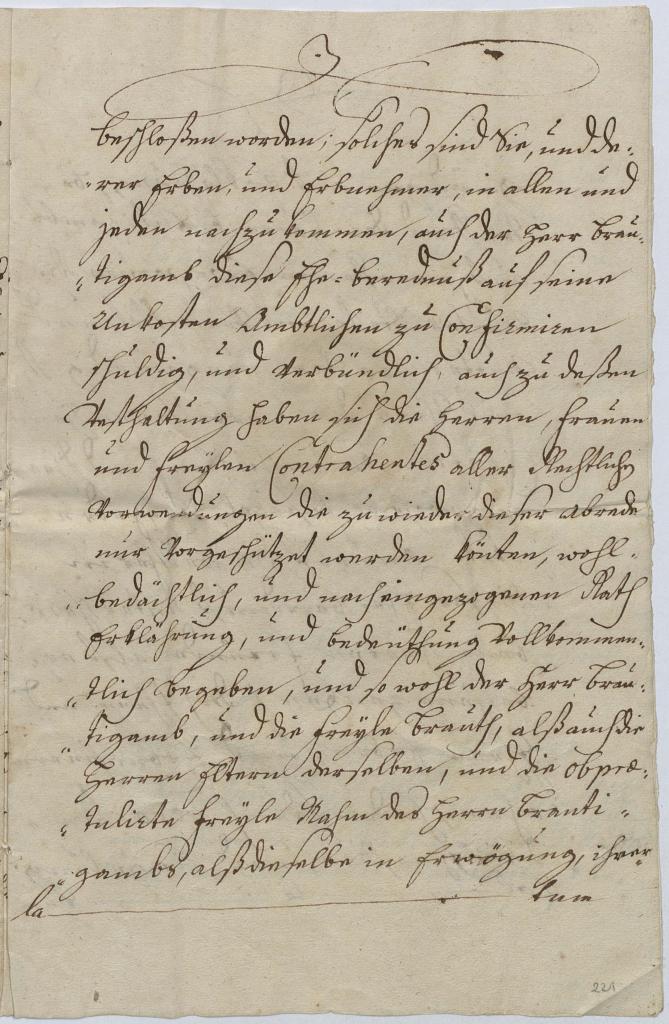 beschloßen worden; solches sind Sie, und de-
-rer Erben, und Erbnehmer, in allen und
jeden nachzukommen, auch der Herr Bräu-
"tigamb diese Ehe-berednuß auf seine
Unkosten Ambtlichen zu Confirmiren
schuldig, und verbündlich, auch zu deßen
Vesthaltung haben sich die Herren, Frauen
und Freylen Contrahentes aller Rechtlichen
Vorwendungen die zuwieder dieser abrede
nur vorgeschützet werden könten, wohl-
"bedächtlich, und nach eingezogenen Rath
Erklährung, und bedeüthung Vollkommen-
"tlich begeben, und so wohl der Herr Bräu-
"tigamb, und die Freyle Brauth, alß auch die
Herren Eltern derselben, und die obprae-
"tulirte Freyle Mahm des Herrn Bräuti-
"gambs, alß dieselbe in Erwögung, ihrer
la
221